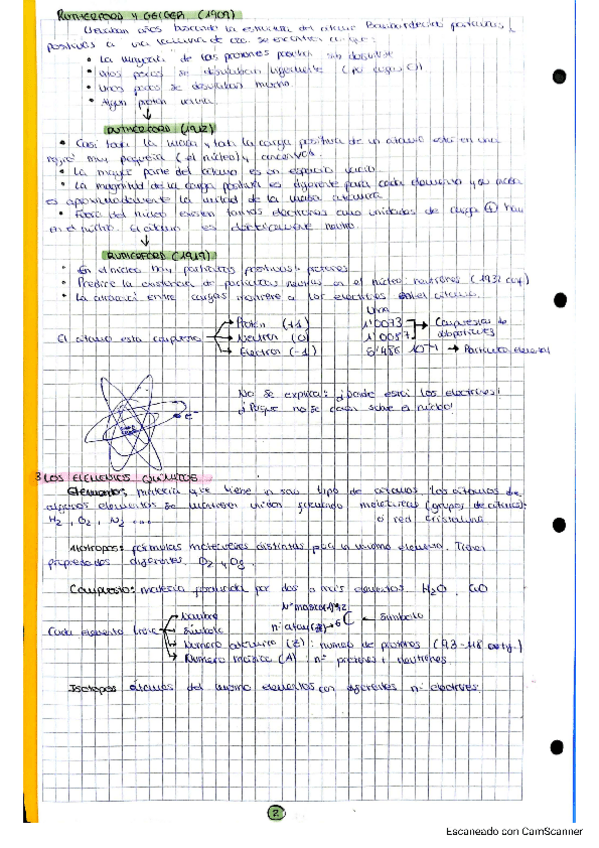 RUTHERFORD Y GEIGER (1909)
Llevaban años buscando la estructura del átomo. Bombardeando partículas
positivas a una lámina de oro. se encuentra que:
• La mayoría de los protones podían sin desviarse
• Unos pocos se desviaban ligeramente
• Unos pocos se desviaban mucho
• Algún protón
RUTHERFORD (1912)
• Casi toda la masa y toda la carga positiva de un átomo está en una
región muy pequeña (el núcleo)
• La mayor parte del átomo es en espacio vacío.
• La magnitud de la carga positiva es diferente para cada elemento y su
es aproximadamente la mitad de la masa atómica
• Fuera del núcleo existen tantos electrones como unidades de carga + hay
en el núcleo. El átomo es eléctricamente neutro.
RUTHERFORD (1919)
• En el núcleo hay partículas positivas: protones
• Predice la existencia de partículas neutras en el núcleo: neutrones (1932
• La atracción entre cargas mantiene a los electrones en el átomo.
Uma
El átomo esta compuesto
Protón (+1) 1'0073
Neutrón (0) 1'0087
Electrón (-1) 5'486 10-4
Compuestas de
Partícula elemental
e-
No se explica: ¿Donde están los electrones?
¿Porque no se caen sobre el núcleo?
3 LOS ELEMENTOS QUÍMICOS
Elemento: materia que tiene un solo tipo de átomos. Los átomos de
algunos elementos se mantienen unidos formando moléculas (grupos de átomos)
H2, O2, N2 ... ó red cristalina
Alótropos: fórmulas moleculares distintas para un mismo elemento. Tienen
propiedades diferentes. O2 y O3.
Compuesto: materia producida por dos o más elementos. H2O, CuO
Cada elemento tiene
Nombre
Símbolo
Número atómico (Z): número de protones (93-118
Número másico (A): nº protones + neutrones.
Nº másico (A) 12
nº atóm (Z) 6 C Símbolo
Isótopos átomos del mismo elementos con diferentes nº electrones.
2
Escaneado con CamScanner